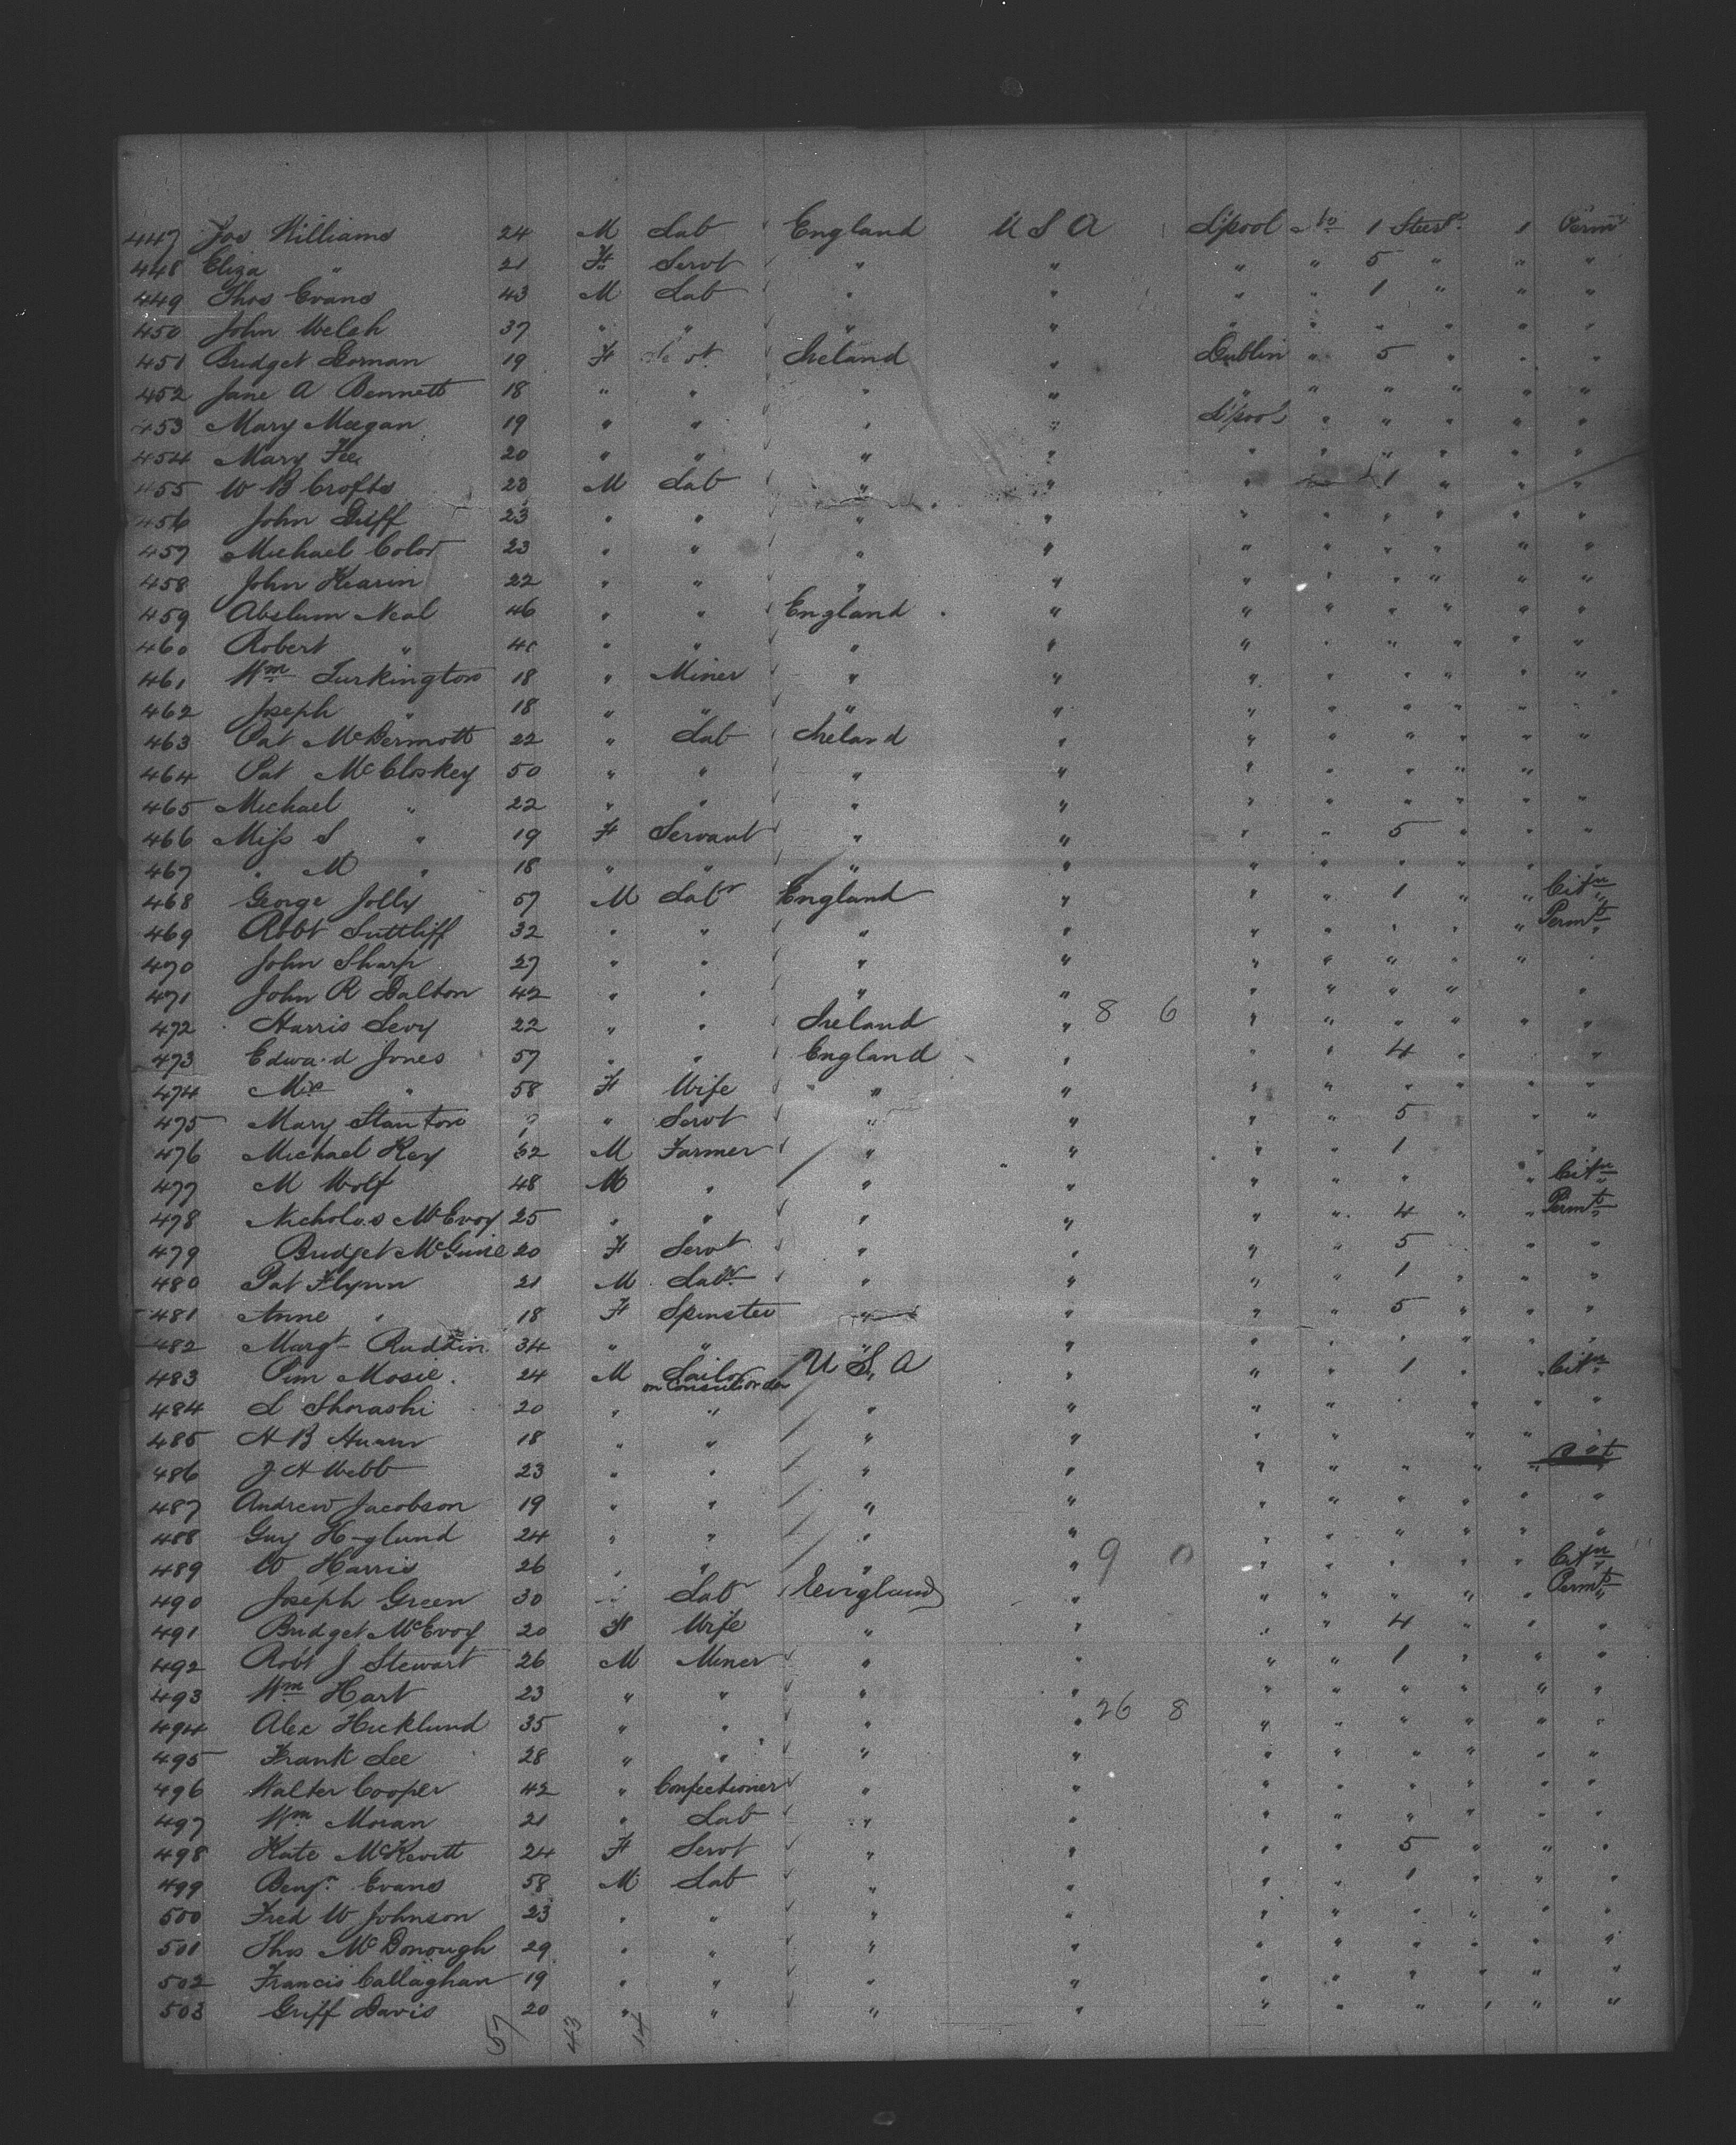 447 Jos Williams 24 M Lab England U S A L'pool No 1 Steer 1 Permt
448 Eliza " 21 F Servt " " " " 5 " " "
449 Thos Evans 43 M Lab " " " " 1 " " "
450 John Welsh 37 " " " " " " " " " "
451 Bridget Gorman 19 F Ireland " Dublin " 5 " " "
452 Jane A Bennett 18 " " " " " " " " " "
453 Mary Meegan 19 " " " " L'pool " " " " "
454 Mary Fee 20 " " " " " " " " " "
455 W B Crofts 23 M Lab " " " 1 " " "
456 John Duff 23 " " " " " " " " " "
457 Michael 23 " " " " " " " " " "
458 John Kearin 22 " " " " " " " " " "
459 Abslum Neal 46 " " England " " " " " " "
460 Robert " " " " " " " " " " "
461 Wm Turkington 18 " Miner " " " " " " " "
462 Joseph " 18 " " " " " " " " "
463 Pat McDermott 22 " Lab Ireland " " " " " " "
464 Pat McCloskey 50 " " " " " " " " "
465 Michael " 22 " " " " " " " " " "
466 Miss S " 19 F Servant " " " " 5 " " "
467 " M " 18 " " " " " " " " " "
468 George Jolly 57 M Labr England " " " 1 " " Citzn
469 Robt Suttliff 32 " " " " " " " " " Permt
470 John Sharp 27 " " " " " " " " " "
471 John R Dalton 42 " " " " " " " " "
472 Harris Levy 22 " " Ireland " 8 6 " " " " " "
473 Edward Jones 57 " " England " " " 4 " "
474 Mrs " 58 F Wife " " " " " " " "
475 Mary Stanton " Servt " " " " 5 " "
476 Michael Key 32 M Farmer " " " " 1 " "
477 M Wolf 48 M " " " " " " " Citzn
478 Nicholas McEvoy 25 " " " " " " 4 " " Permt
479 Bridget McGuire 20 F Servt " " " " 5 " "
480 Pat Flynn 21 M Labr " " " " 1 " " "
481 Anne " 18 F Spinster " " " " 5 " " "
482 Margt 34 " " " " " " " " " "
483 Pim Mosie 24 M Sailor U S A " " " 1 " " Citzn
on Consul order
484 L Shorashi 20 " " " " " " " " "
485 H B 18 " " " " " " " "
486 J H Webb 23 " " " " " " " " "
487 Andrew Jacobson 19 " " " " " " " " " "
488 Guy Hoglund 24 " " " " " " " " " "
489 W Harris 26 " " " " 9 0 " " " " " Citzn
490 Joseph Green 30 " Lab England " " " " " " Permt
491 Bridget McEvoy 20 F Wife " " " " 4 " " "
492 Robt J Stewart 26 M Miner " " " " 1 " " "
493 Wm Hart 23 " " " " " " " " " "
494 Alex Hicklund 35 " " " " 26 8 " " " " " "
495 Frank Lee 28 " " " " " " " " " "
496 Walter Cooper 42 " Confectioner " " " " " " " "
497 Wm Moran 21 " Lab " " " " " " " "
498 Kate McKevitt 24 F Servt " " " " 5 " " "
499 Benj. Evans 58 M Lab " " " " 1 " " "
500 Fred W Johnson 23 " " " " " " " " " "
501 Thos McDonough 29 " " " " " " " " " "
502 Francis Callaghan 19 " " " " " " " " " "
503 Griff Davis 20 " " " " " " " " " "
57 43 14